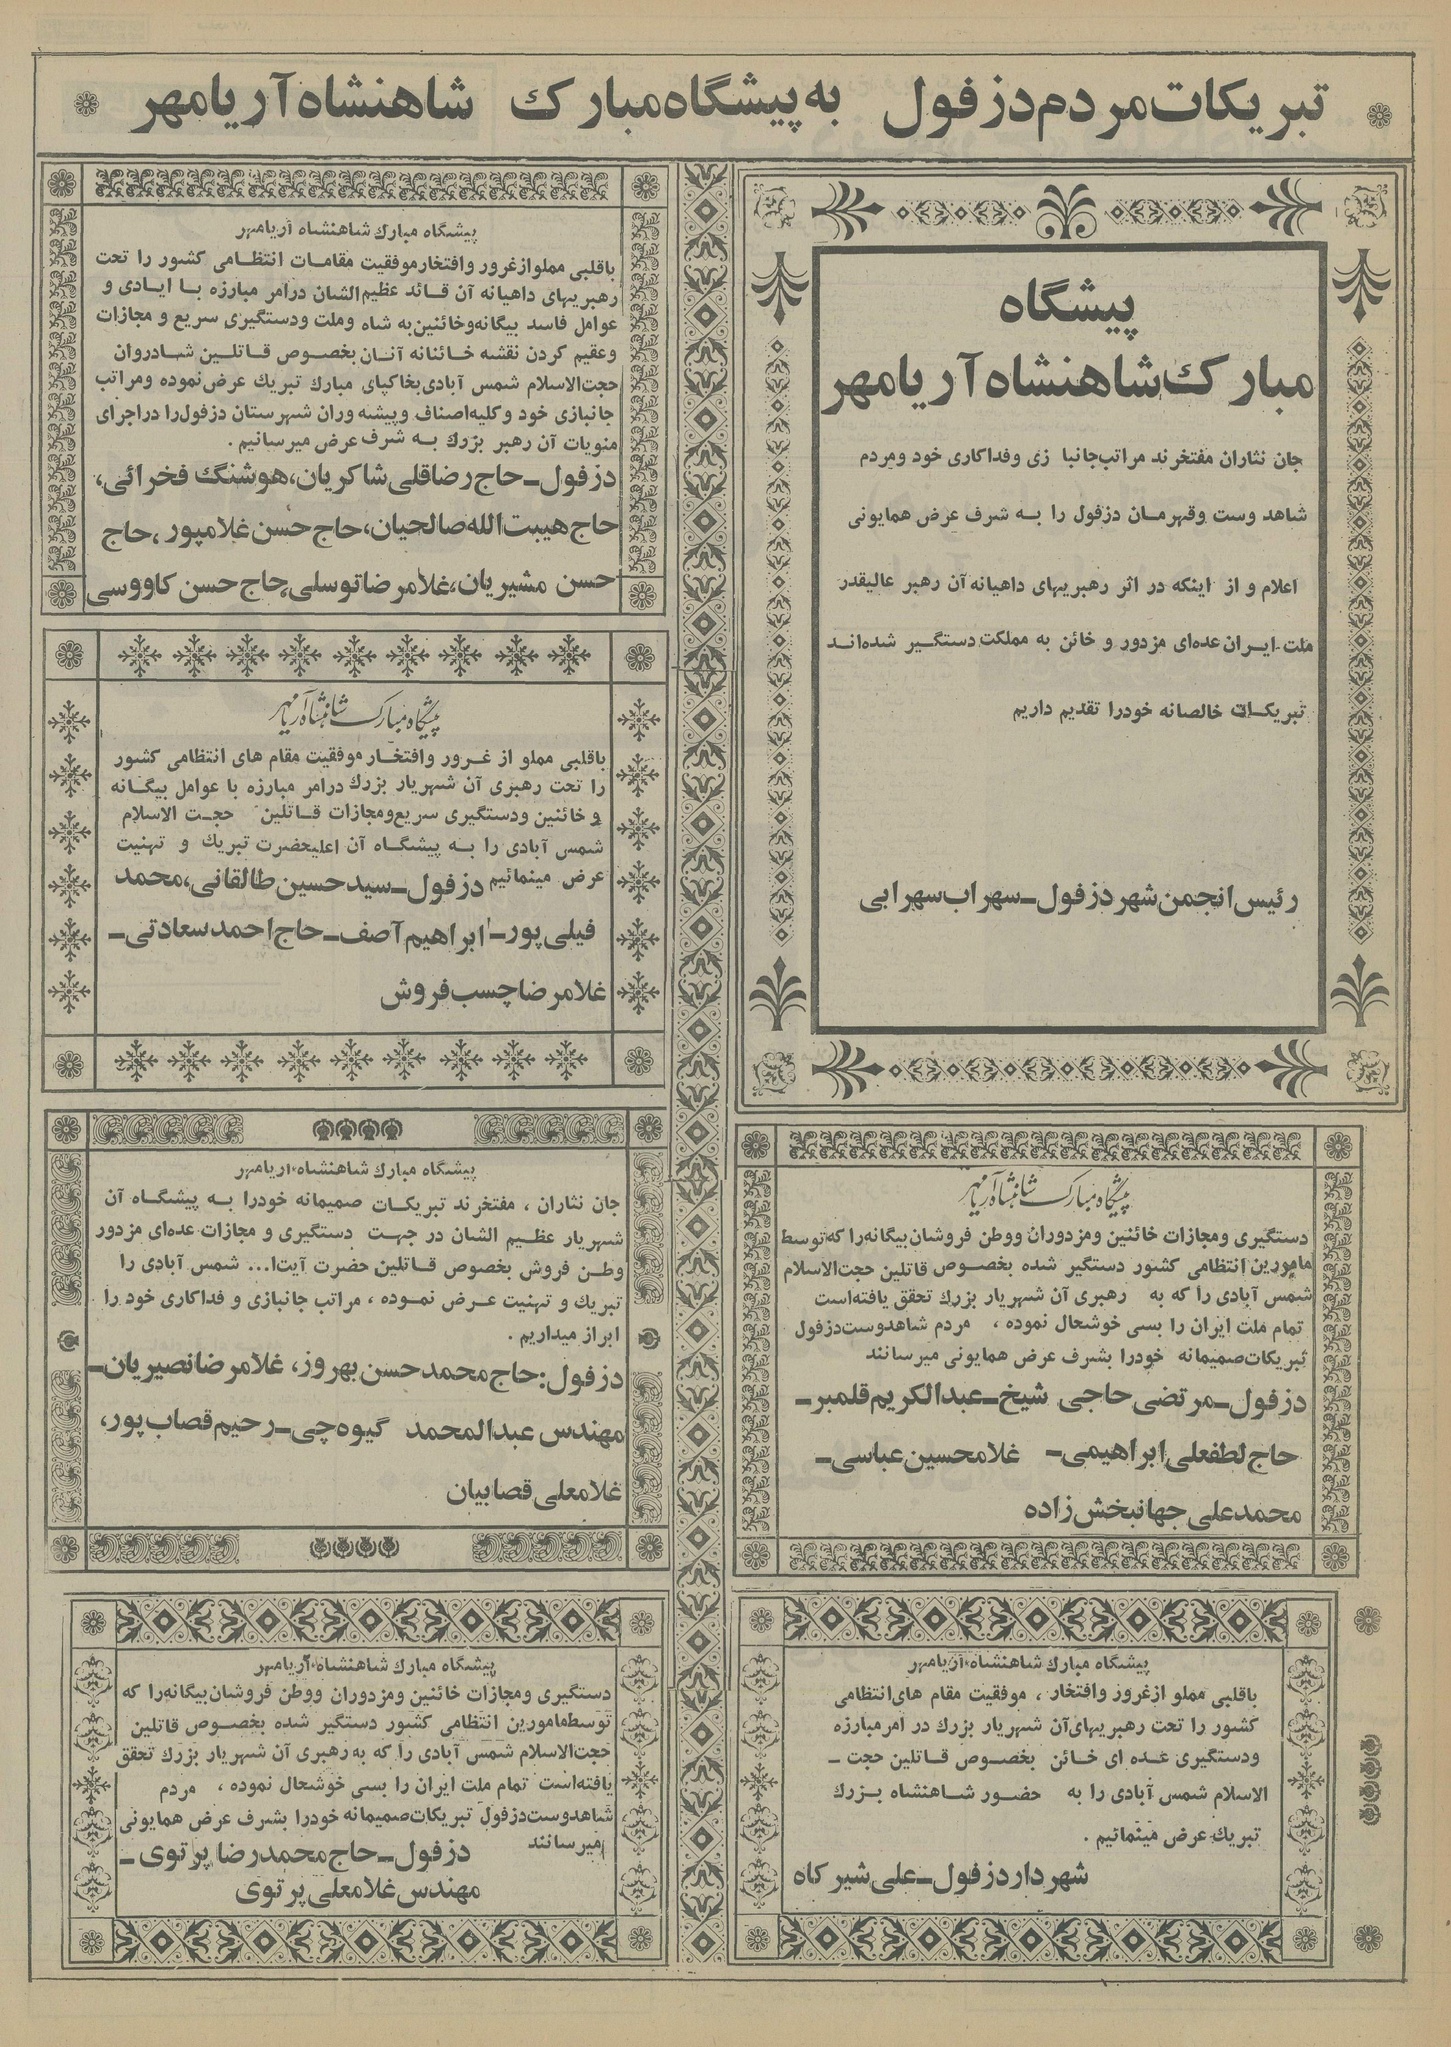 تبریکات مردم دزفول به پیشگاه مبارک شاهنشاه آریامهر
پیشگاه
مبارک شاهنشاه آریامهر
جان نثاران مفتخرند مراتب جانبازی وفداکاری خود ومردم
شاهدوست وقهرمان دزفول را به شرف عرض همایونی
اعلام و از اینکه در اثر رهبریهای داهیانه آن رهبر عالیقدر
ملت ایران عده‌ای مزدور و خائن به مملکت دستگیر شده‌اند
تبریکات خالصانه خودرا تقدیم داریم
رئیس انجمن شهر دزفول ـ سهراب سهرابی
پیشگاه مبارک شاهنشاه آریامهر
دستگیری ومجازات خائنین ومزدوران ووطن فروشان بیگانه‌را که توسط
مامورین انتظامی کشور دستگیر شده بخصوص قاتلین حجت‌الاسلام
شمس آبادی را که به رهبری آن شهریار بزرگ تحقق یافته‌است
تمام ملت ایران را بسی خوشحال نموده ، مردم شاهدوست دزفول
تبریکات صمیمانه خودرا بشرف عرض همایونی میرسانند
دزفول ـ مرتضی حاجی شیخ ـ عبدالکریم قلمبر ـ
حاج لطفعلی ابراهیمی ـ غلامحسین عباسی ـ
محمدعلی جهانبخش زاده
پیشگاه مبارک شاهنشاه آریامهر
باقلبی مملو ازغرور وافتخار ، موفقیت مقام های انتظامی
کشور را تحت رهبریهای آن شهریار بزرگ در امر مبارزه
ودستگیری عده ای خائن بخصوص قاتلین حجت ـ
الاسلام شمس آبادی را به حضور شاهنشاه بزرگ
تبریک عرض مینمائیم .
شهردار دزفول ـ علی شیرکاه
پیشگاه مبارک شاهنشاه آریامهر
باقلبی مملو ازغرور وافتخار موفقیت مقامات انتظامی کشور را تحت
رهبریهای داهیانه آن قائد عظیم الشان درامر مبارزه با ایادی و
عوامل فاسد بیگانه وخائنین به شاه وملت ودستگیری سریع و مجازات
وعقیم کردن نقشه خائنانه آنان بخصوص قاتلین شادروان
حجت‌الاسلام شمس آبادی بخاکپای مبارک تبریک عرض نموده ومراتب
جانبازی خود وکلیه اصناف وپیشه وران شهرستان دزفول را دراجرای
منویات آن رهبر بزرگ به شرف عرض میرسانیم .
دزفول ـ حاج رضاقلی شاکریان، هوشنگ فخرائی،
حاج هیبت الله صالحیان، حاج حسن غلامپور ، حاج
حسن مشیریان، غلامرضا توسلی، حاج حسن کاووسی
پیشگاه مبارک شاهنشاه آریامهر
باقلبی مملو از غرور وافتخار موفقیت مقام های انتظامی کشور
را تحت رهبری آن شهریار بزرگ درامر مبارزه با عوامل بیگانه
و خائنین ودستگیری سریع ومجازات قاتلین حجت الاسلام
شمس آبادی را به پیشگاه آن اعلیحضرت تبریک و تهنیت
عرض مینمائیم دزفول ـ سید حسین طالقانی، محمد
فیلی پور ـ ابراهیم آصف ـ حاج احمد سعادتی ـ
غلامرضا چسب فروش
پیشگاه مبارک شاهنشاه آریامهر
جان نثاران ، مفتخرند تبریکات صمیمانه خودرا به پیشگاه آن
شهریار عظیم الشان در جهت دستگیری و مجازات عده‌ای مزدور
وطن فروش بخصوص قاتلین حضرت آیت‌ا... شمس آبادی را
تبریک و تهنیت عرض نموده ، مراتب جانبازی و فداکاری خود را
ابراز میداریم .
دزفول: حاج محمدحسن بهروز، غلامرضا نصیریان ـ
مهندس عبدالمحمد گیوه‌چی ـ رحیم قصاب پور،
غلامعلی قصابیان
پیشگاه مبارک شاهنشاه آریامهر
دستگیری ومجازات خائنین ومزدوران ووطن فروشان بیگانه‌را که
توسط مامورین انتظامی کشور دستگیر شده بخصوص قاتلین
حجت‌الاسلام شمس آبادی را که به رهبری آن شهریار بزرگ تحقق
یافته‌است تمام ملت ایران را بسی خوشحال نموده ، مردم
شاهدوست دزفول تبریکات صمیمانه خودرا بشرف عرض همایونی
میرسانند دزفول ـ حاج محمدرضا پرتوی ـ
مهندس غلامعلی پرتوی